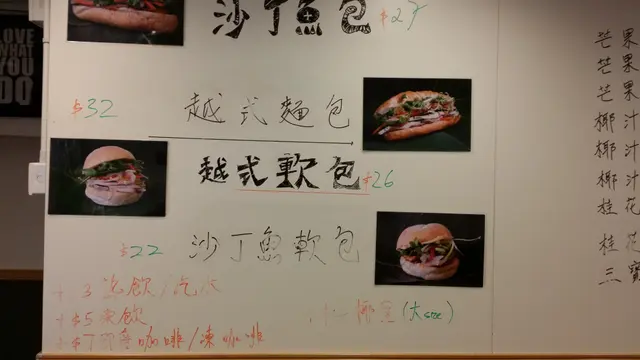 LOVE
WHAT
YOU
DO
沙丁魚包 $27
$32 越式麵包
越式軟包 $26
$22 沙丁魚軟包
+3 熱飲/汽水
+$5 凍飲
+$7 咖啡/凍咖啡
椰皇(大size)
芒果
芒果
芒果
椰汁
椰汁
椰汁
桂花
桂花
三寶